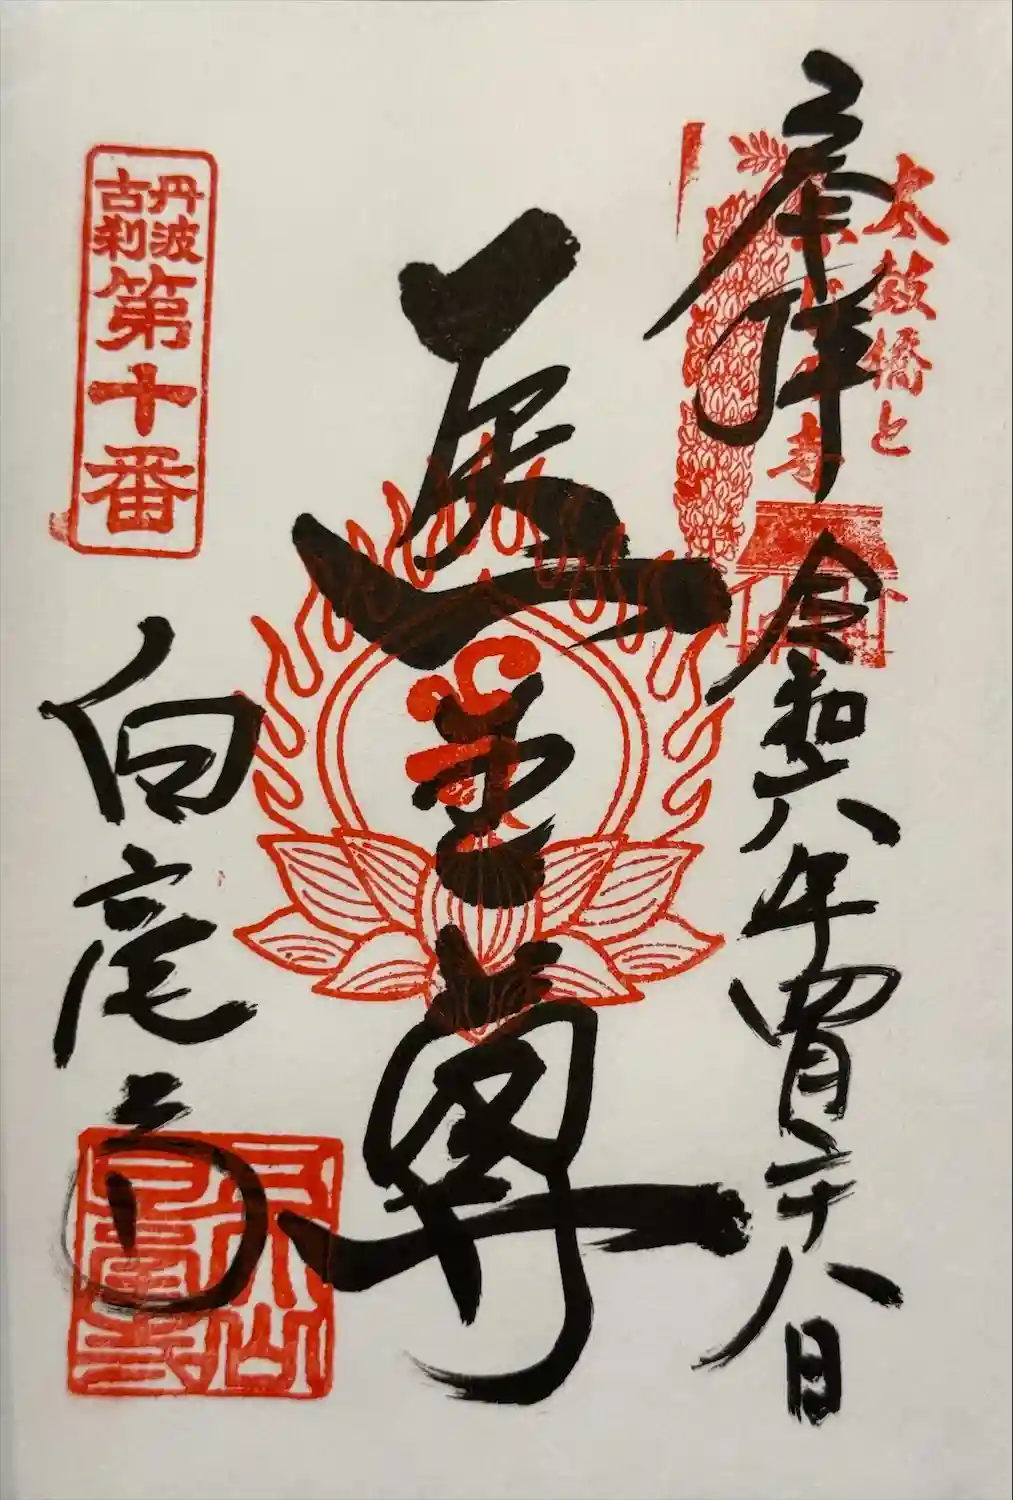 太鼓橋と
奉拝
令和六年四月二十八日
医王尊
丹波
古刹
第十番
白毫寺
五大山
白毫寺